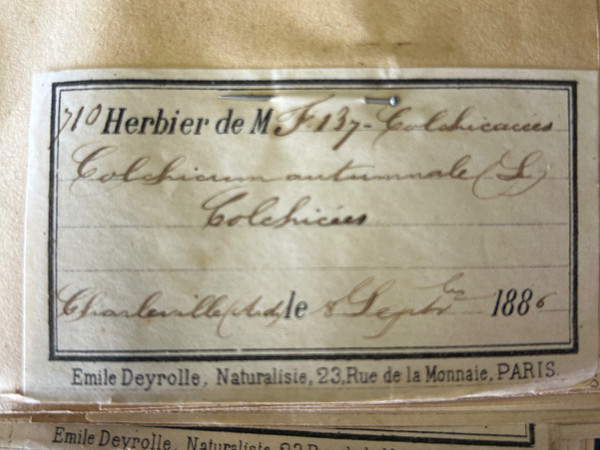 710 Herbier de M F. 137 - Colchicacées
Colchicum autumnale (L)
Colchicées
Charleville (Ard) le 8 Septbre 1886
Emile Deyrolle, Naturaliste, 23, Rue de la Monnaie, PARIS.
Emile Deyrolle, Naturaliste, 23, Rue de la M